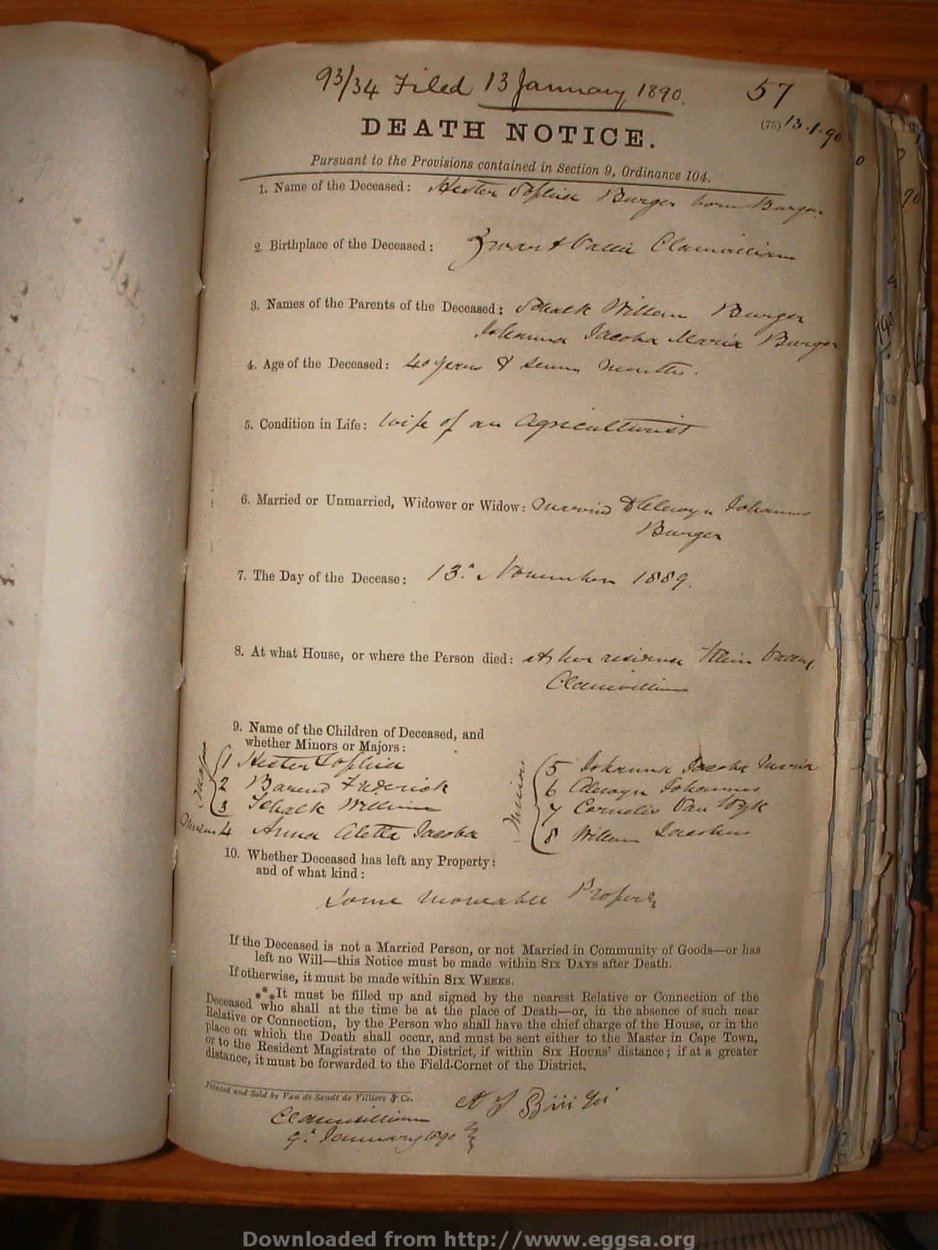 93/34 Filed 13 January 1890. 57
(75) 13.1.90
DEATH NOTICE.
Pursuant to the Provisions contained in Section 9, Ordinance 104.
1. Name of the Deceased: Hester Sophia Burger born Burger
2. Birthplace of the Deceased: Clanwilliam
3. Names of the Parents of the Deceased: Schalk Willem Burger
Johanna Jacoba Maria Burger
4. Age of the Deceased: 40 years & seven months.
5. Condition in Life: Wife of an Agriculturist
6. Married or Unmarried, Widower or Widow: Married Johannes
Burger
7. The Day of the Decease: 13. November 1889.
8. At what House, or where the Person died: At her residence
Clanwilliam
9. Name of the Children of Deceased, and
whether Minors or Majors:
Majors
1 Hester Sophia
2 Barend Frederick
3 Schalk Willem
Minors 4 Anna Aletta Jacoba
Minors
5 Johanna Jacoba Maria
6 Alewyn Johannes
7 Cornelis Van Wyk
8 Willem Jacobus
10. Whether Deceased has left any Property:
and of what kind:
Some moveable Property
If the Deceased is not a Married Person, or not Married in Community of Goods—or has
left no Will—this Notice must be made within SIX DAYS after Death.
If otherwise, it must be made within SIX WEEKS.
It must be filled up and signed by the nearest Relative or Connection of the
Deceased who shall at the time be at the place of Death—or, in the absence of such near
Relative or Connection, by the Person who shall have the chief charge of the House, or in the
place on which the Death shall occur, and must be sent either to the Master in Cape Town,
or to the Resident Magistrate of the District, if within SIX HOURS' distance; if at a greater
distance, it must be forwarded to the Field-Cornet of the District.
Printed and Sold by Van de Sandt de Villiers & Co.
Clanwilliam
9. January 1890
Downloaded from http://www.eggsa.org